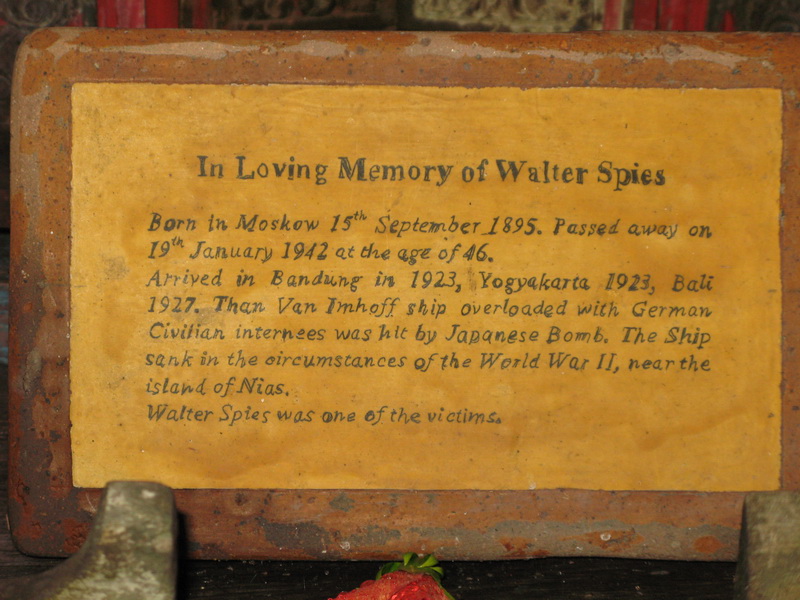 In Loving Memory of Walter Spies
Born in Moskow 15th September 1895. Passed away on
19th January 1942 at the age of 46.
Arrived in Bandung in 1923, Yogyakarta 1923, Bali
1927. Than Van Imhoff ship overloaded with German
Civilian internees was hit by Japanese Bomb. The Ship
sank in the circumstances of the World War II, near the
island of Nias.
Walter Spies was one of the victims.